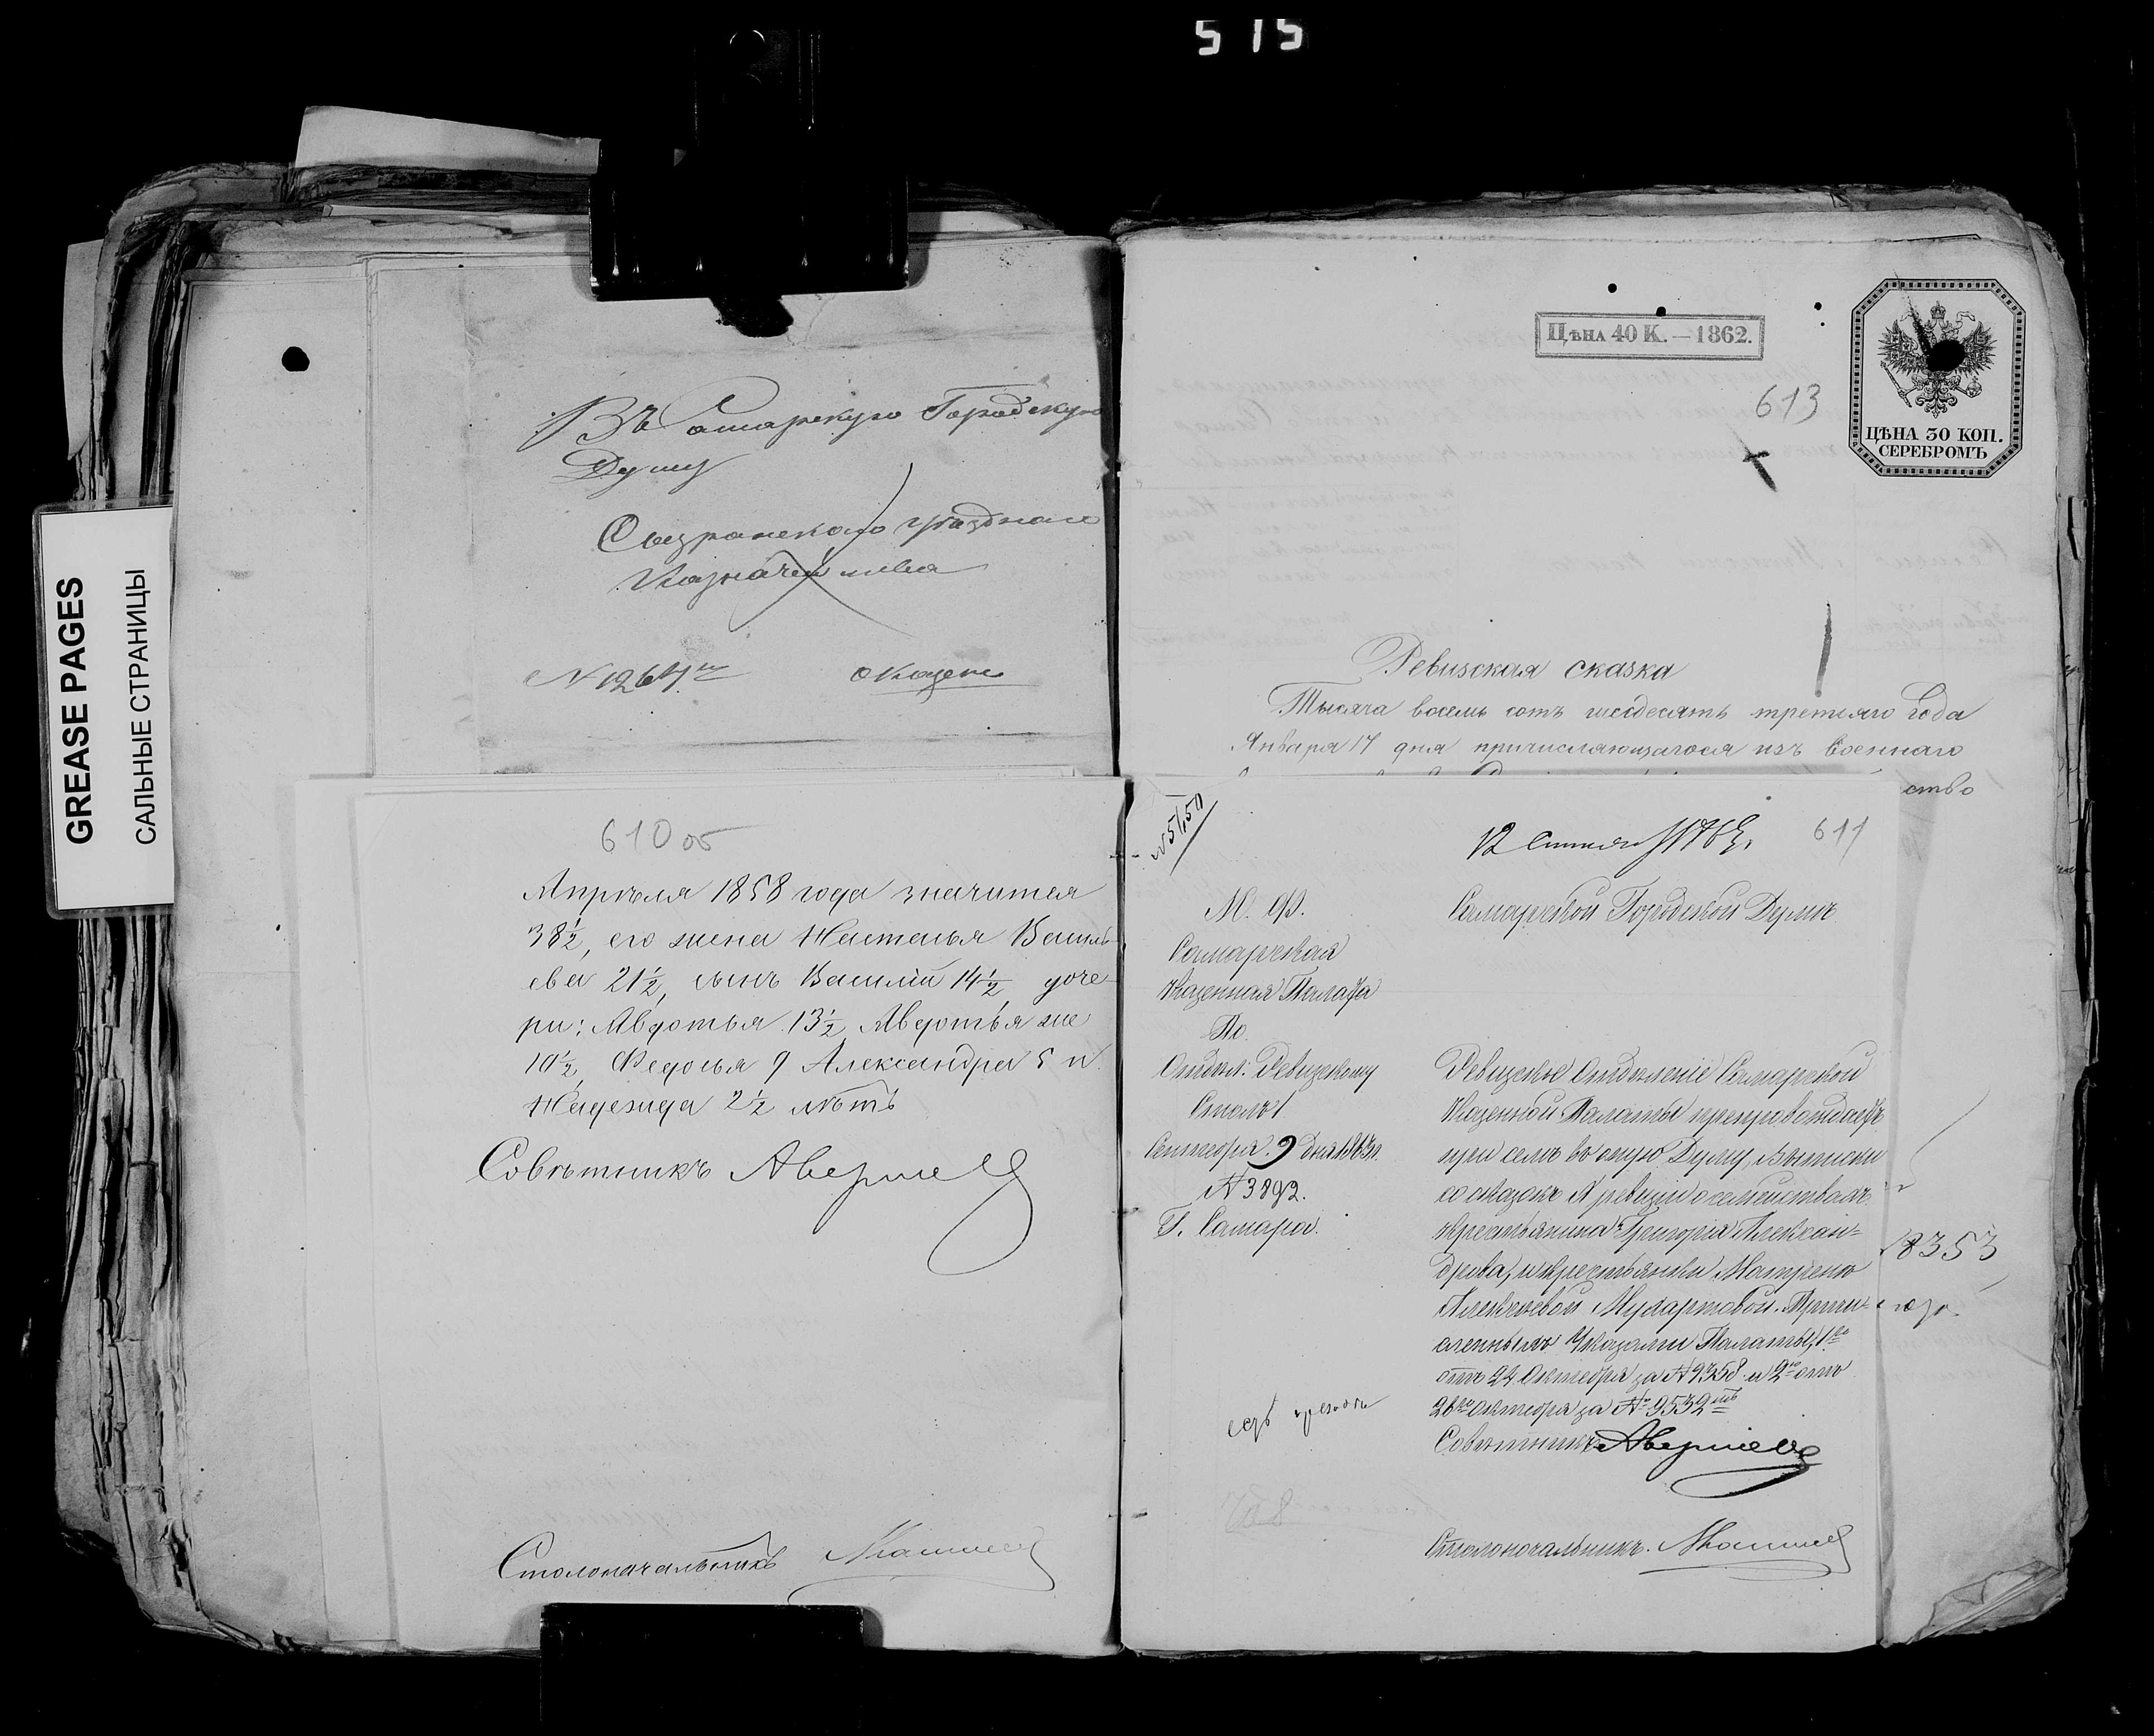 515
GREASE PAGES
САЛЬНЫЕ СТРАНИЦЫ
Въ Самарскую Городскую
Думу
Сызранского уѣзднаго
Казначейства
№ 1264
610 об
Апрѣля 1858 года значится
38½, его жена Настасья Василь-
ева 21½, сынъ Василій 14½, доче-
ри: Авдотья 13½, Авдотья же
10½, Федосья 9 Александра 5 и
Надежда 2½ лѣтъ
Совѣтникъ
Столоначальникъ
Цѣна 40 К. — 1862.
613
ЦѢНА 30 КОП.
СЕРЕБРОМЪ
Ревизская сказка
Тысяча восемь сотъ шесдесятъ третьяго года
Января 17 дня причисляющагося изъ военнаго
ство
№ 5150
12 Сентяб 1863 г.
611
М. Ф.
Самарская
Казенная Палата
По
Отдѣл: Ревизскому
Столъ 1
Сентября 9 дня 1863 г.
№ 3892.
Г. Самара.
Самарской Городской Думѣ
Ревизское Отдѣленіе Самарской
Казенной Палаты препровождаетъ
при семъ въ оную Думу, выписки
со сказокъ X ревизіи о семействахъ
крестьянина Григорія Алексан-
дрова, и крестьянки Матрены
Алексѣевой Мухартовой. Причи-
сленныхъ Указами Палаты, 1е
отъ 24 Октября за № 9358 и 2е отъ
26го Октября за № 9532мъ
Совѣтникъ
Столоначальникъ.
8353